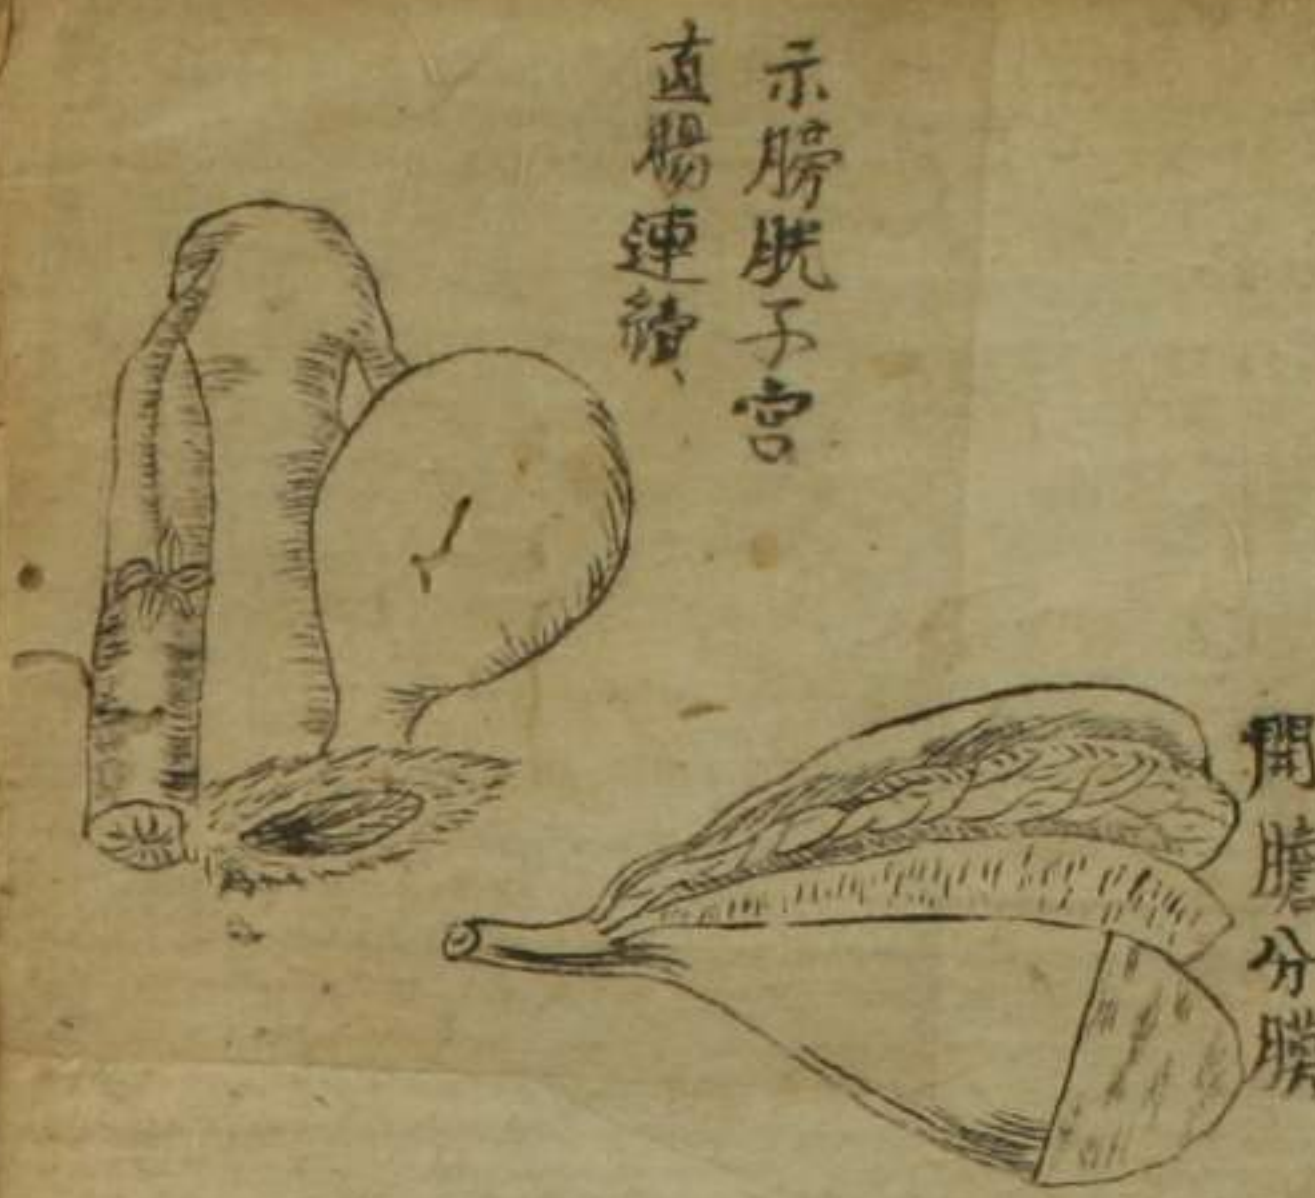 示膀胱子宮
直腸連續
開膽分膜